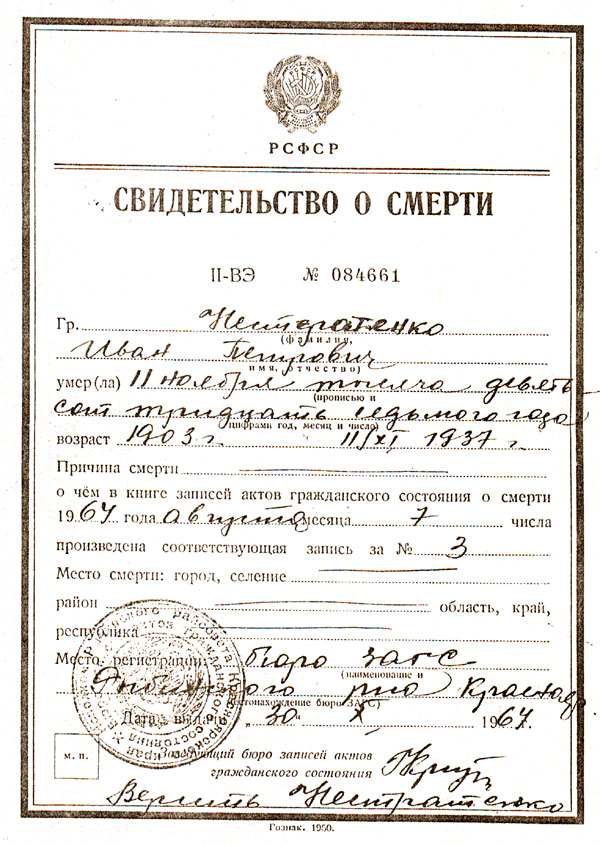 РСФСР
СВИДЕТЕЛЬСТВО О СМЕРТИ
II-ВЭ № 084661
Гр. Нестератенко
(фамилия,
Иван Петрович
имя, отчество)
умер(ла) 11 ноября тысяча девять
(прописью и
сот тридцать седьмого года
цифрами год, месяц и число)
возраст 1903 г. 11/XI 1937 г
Причина смерти
о чём в книге записей актов гражданского состояния о смерти
1964 года августа месяца 7 числа
произведена соответствующая запись за № 3
Место смерти: город, селение
район область, край,
республика
Место регистрации: Бюро ЗАГС
(наименование и
Рыбинского р-на Краснояр
местонахождение бюро ЗАГС)
Дата выдачи „30“ X 1964 г.
м. п.
Заведующий бюро записей актов
гражданского состояния
Нестратенко
Гознак. 1960.